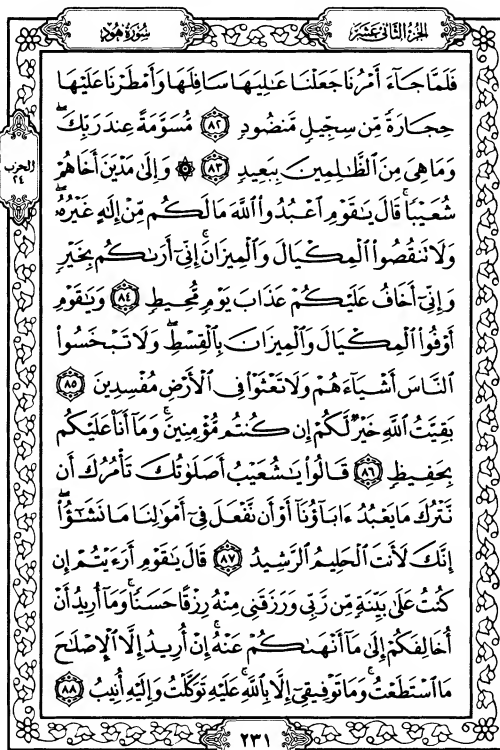 الجزء الثاني عشر
سورة هود
فَلَمَّا جَآءَ أَمْرُنَا جَعَلْنَا عَـٰلِيَهَا سَافِلَهَا وَأَمْطَرْنَا عَلَيْهَا
حِجَارَةً مِّن سِجِّيلٍ مَّنضُودٍ ٨٢ مُّسَوَّمَةً عِندَ رَبِّكَۖ
وَمَا هِىَ مِنَ ٱلظَّـٰلِمِينَ بِبَعِيدٍ ٨٣ ۞ وَإِلَىٰ مَدْيَنَ أَخَاهُمْ
الحزب
٢٤
شُعَيْبًاۚ قَالَ يَـٰقَوْمِ ٱعْبُدُوا۟ ٱللَّهَ مَا لَكُم مِّنْ إِلَـٰهٍ غَيْرُهُۥۖ
وَلَا تَنقُصُوا۟ ٱلْمِكْيَالَ وَٱلْمِيزَانَۚ إِنِّىٓ أَرَىٰكُم بِخَيْرٍ
وَإِنِّىٓ أَخَافُ عَلَيْكُمْ عَذَابَ يَوْمٍ مُّحِيطٍ ٨٤ وَيَـٰقَوْمِ
أَوْفُوا۟ ٱلْمِكْيَالَ وَٱلْمِيزَانَ بِٱلْقِسْطِۖ وَلَا تَبْخَسُوا۟
ٱلنَّاسَ أَشْيَآءَهُمْ وَلَا تَعْثَوْا۟ فِى ٱلْأَرْضِ مُفْسِدِينَ ٨٥
بَقِيَّتُ ٱللَّهِ خَيْرٌ لَّكُمْ إِن كُنتُم مُّؤْمِنِينَۚ وَمَآ أَنَا۠ عَلَيْكُم
بِحَفِيظٍ ٨٦ قَالُوا۟ يَـٰشُعَيْبُ أَصَلَوٰتُكَ تَأْمُرُكَ أَن
نَّتْرُكَ مَا يَعْبُدُ ءَابَآؤُنَآ أَوْ أَن نَّفْعَلَ فِىٓ أَمْوَٰلِنَا مَا نَشَـٰٓؤُا۟ۖ
إِنَّكَ لَأَنتَ ٱلْحَلِيمُ ٱلرَّشِيدُ ٨٧ قَالَ يَـٰقَوْمِ أَرَءَيْتُمْ إِن
كُنتُ عَلَىٰ بَيِّنَةٍ مِّن رَّبِّى وَرَزَقَنِى مِنْهُ رِزْقًا حَسَنًاۚ وَمَآ أُرِيدُ أَنْ
أُخَالِفَكُمْ إِلَىٰ مَآ أَنْهَىٰكُمْ عَنْهُۚ إِنْ أُرِيدُ إِلَّا ٱلْإِصْلَـٰحَ
مَا ٱسْتَطَعْتُۚ وَمَا تَوْفِيقِىٓ إِلَّا بِٱللَّهِۚ عَلَيْهِ تَوَكَّلْتُ وَإِلَيْهِ أُنِيبُ ٨٨
٢٣١